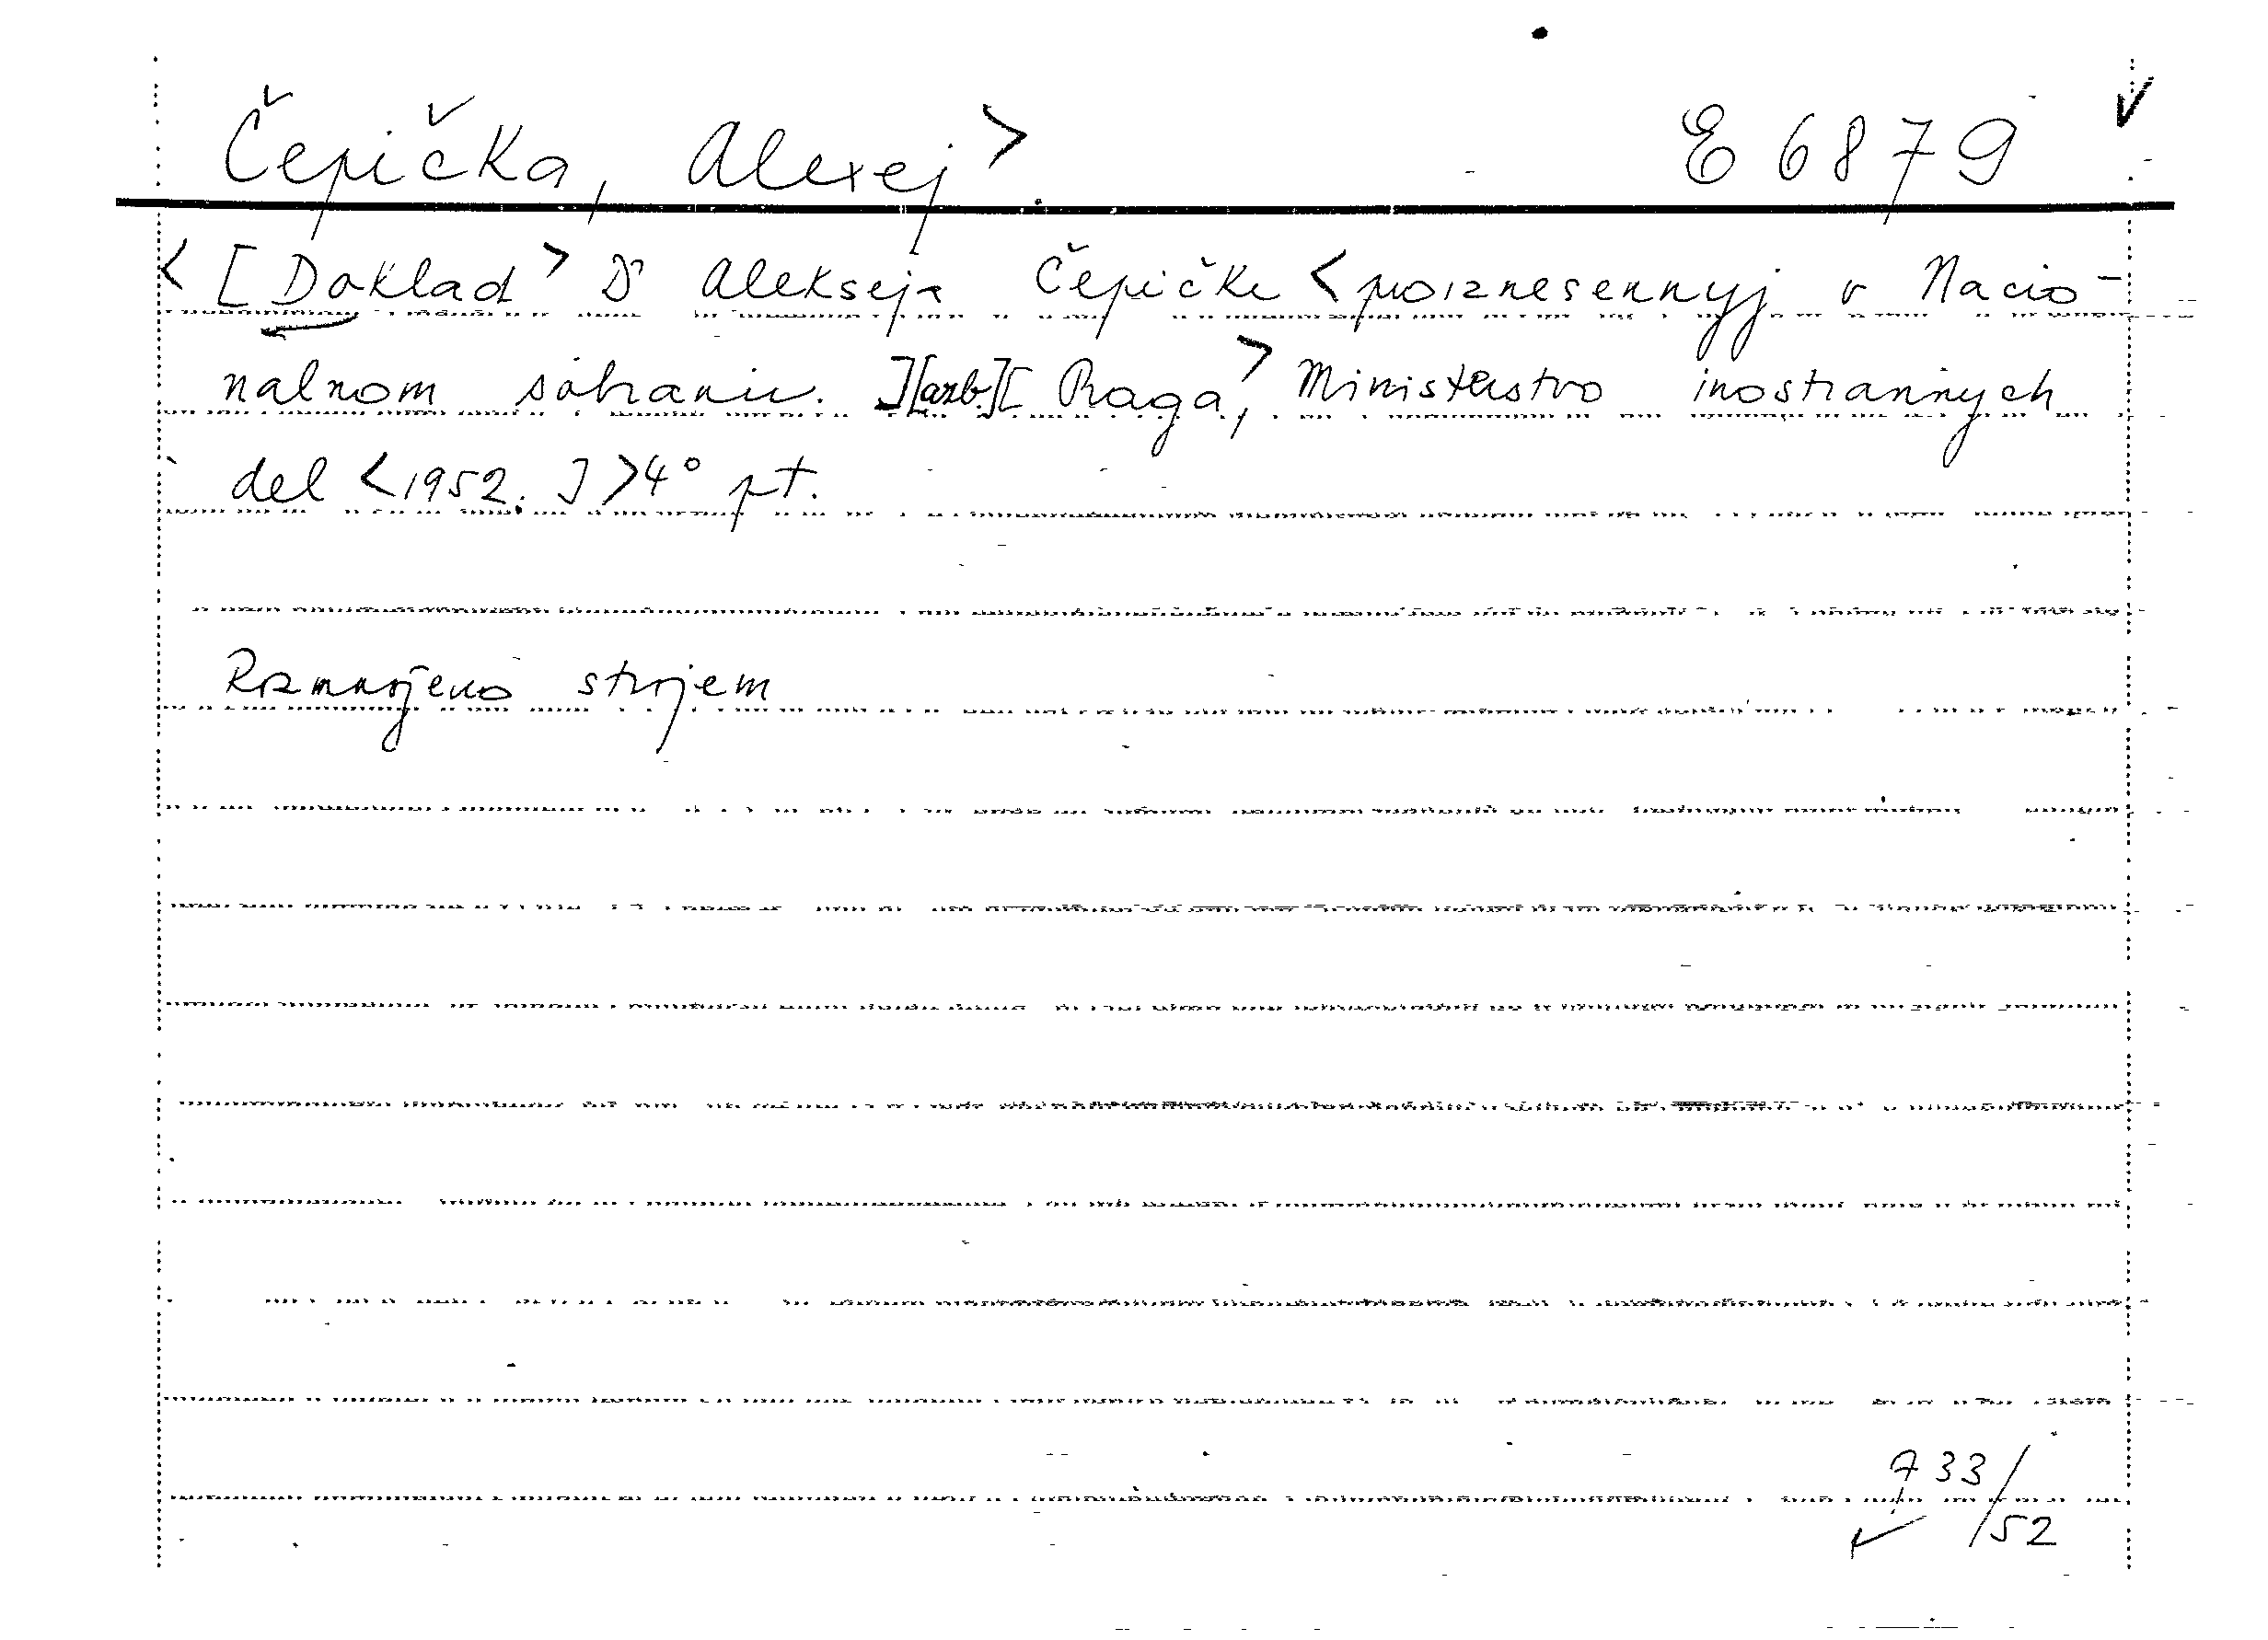 Čepička, Alexej > E 6879
< [Doklad > Dr Alekseja Čepičke < proiznesennyj v Nacio-
nalnom sobranii. ][azb.][ Praga, > Ministerstvo inostrannych
del < 1952. ] > 4° pt.
Rozmnoženo strojem
733/
52